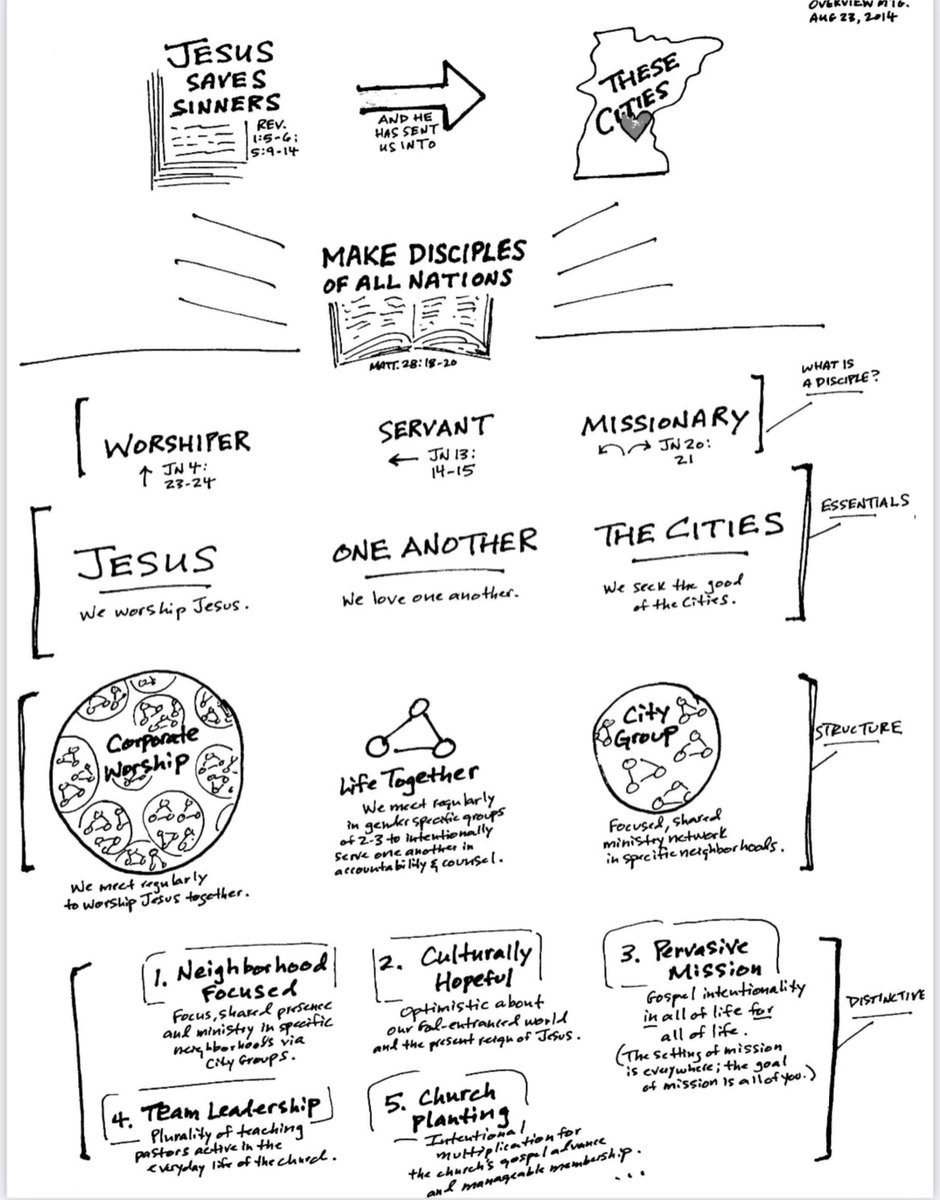 OVERVIEW MTG.
AUG 23, 2014
JESUS
SAVES
SINNERS
REV.
1:5-6;
5:9-14
AND HE
HAS SENT
US INTO
THESE
CITIES
MAKE DISCIPLES
OF ALL NATIONS
MATT. 28:18-20
WHAT IS
A DISCIPLE?
WORSHIPER
JN 4:
23-24
SERVANT
JN 13:
14-15
MISSIONARY
JN 20:
21
ESSENTIALS
JESUS
We worship Jesus.
ONE ANOTHER
We love one another.
THE CITIES
We seek the good
of the Cities.
STRUCTURE
Corporate
Worship
We meet regularly
to worship Jesus together.
Life Together
We meet regularly
in gender specific groups
of 2-3 to intentionally
serve one another in
accountability & counsel.
City
Group
Focused, shared
ministry network
in specific neighborhoods.
DISTINCTIVE
1. Neighborhood
Focused
Focus, shared presence
and ministry in specific
neighborhoods via
City Groups.
2. Culturally
Hopeful
Optimistic about
our God-entranced world
and the present reign of Jesus.
3. Pervasive
Mission
Gospel intentionality
in all of life for
all of life.
(The setting of mission
is everywhere; the goal
of mission is all of you.)
4. Team Leadership
Plurality of teaching
pastors active in the
everyday life of the church.
5. Church
Planting
Intentional
multiplication for
the church's gospel advance
and manageable membership.
...